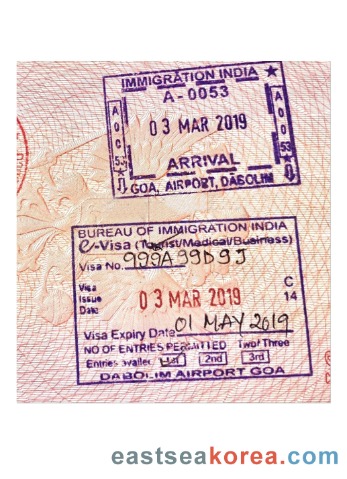 IMMIGRATION INDIA ★
A-0053
A 00 53
03 MAR 2019
A 00 53
ARRIVAL
GOA, AIRPORT, DABOLIM
BUREAU OF IMMIGRATION INDIA
e-Visa (Tourist/Medical/Business)
Visa No. 999A99D9J
Visa
Issue
Date
03 MAR 2019
C
14
Visa Expiry Date 01 MAY 2019
NO OF ENTRIES PERMITTED Two/Three
Entries availed 1st 2nd 3rd
DABOLIM AIRPORT GOA
eastseakorea.com